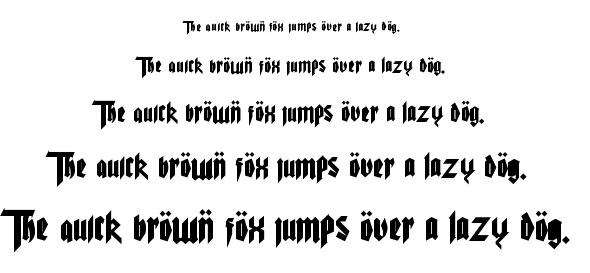 The quick bröwn̈ föx jumps över a lazy dög.
The quick bröwn̈ föx jumps över a lazy dög.
The quick bröwn̈ föx jumps över a lazy dög.
The quick bröwn̈ föx jumps över a lazy dög.
The quick bröwn̈ föx jumps över a lazy dög.